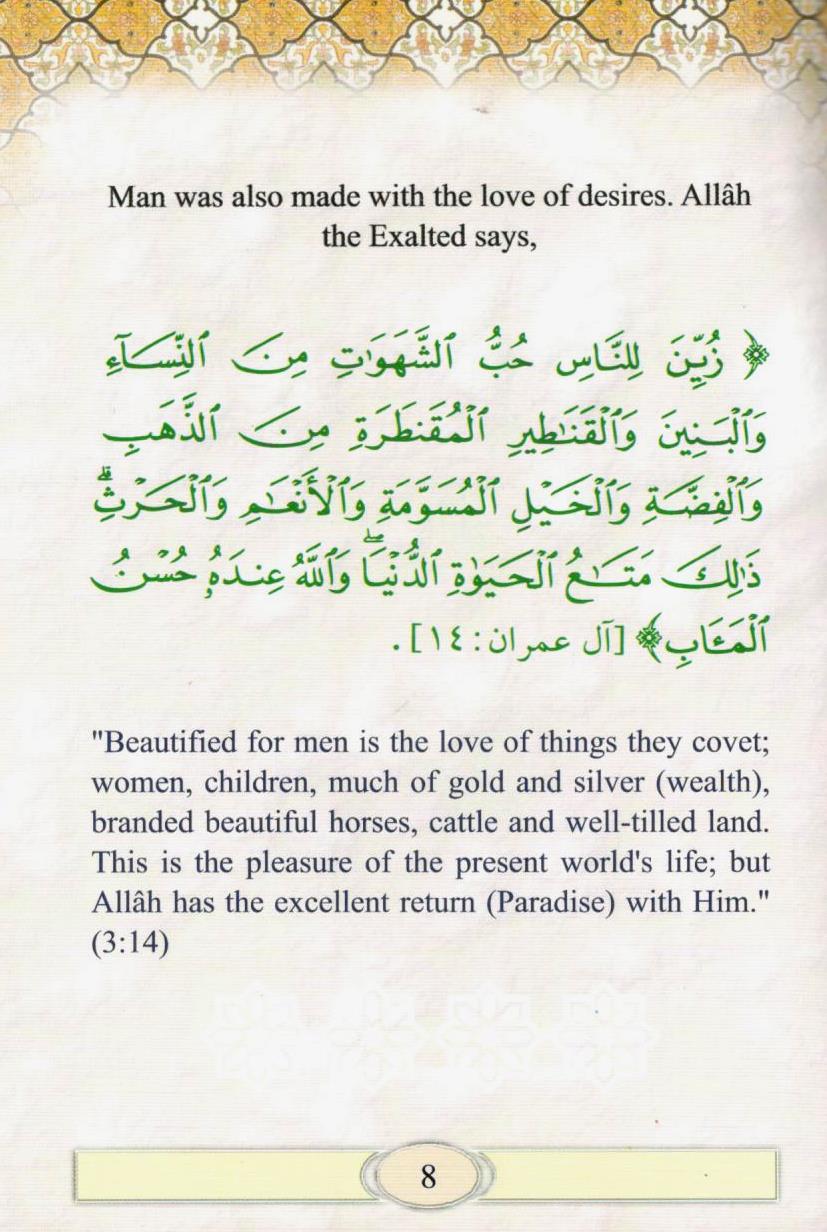 Man was also made with the love of desires. Allâh
the Exalted says,
﴿ زُيِّنَ لِلنَّاسِ حُبُّ ٱلشَّهَوَٰتِ مِنَ ٱلنِّسَآءِ
وَٱلْبَنِينَ وَٱلْقَنَٰطِيرِ ٱلْمُقَنطَرَةِ مِنَ ٱلذَّهَبِ
وَٱلْفِضَّةِ وَٱلْخَيْلِ ٱلْمُسَوَّمَةِ وَٱلْأَنْعَٰمِ وَٱلْحَرْثِ ۗ
ذَٰلِكَ مَتَٰعُ ٱلْحَيَوٰةِ ٱلدُّنْيَا ۖ وَٱللَّهُ عِندَهُۥ حُسْنُ
ٱلْمَـَٔابِ﴾ [آل عمران: ١٤] .
"Beautified for men is the love of things they covet;
women, children, much of gold and silver (wealth),
branded beautiful horses, cattle and well-tilled land.
This is the pleasure of the present world's life; but
Allâh has the excellent return (Paradise) with Him."
(3:14)
8